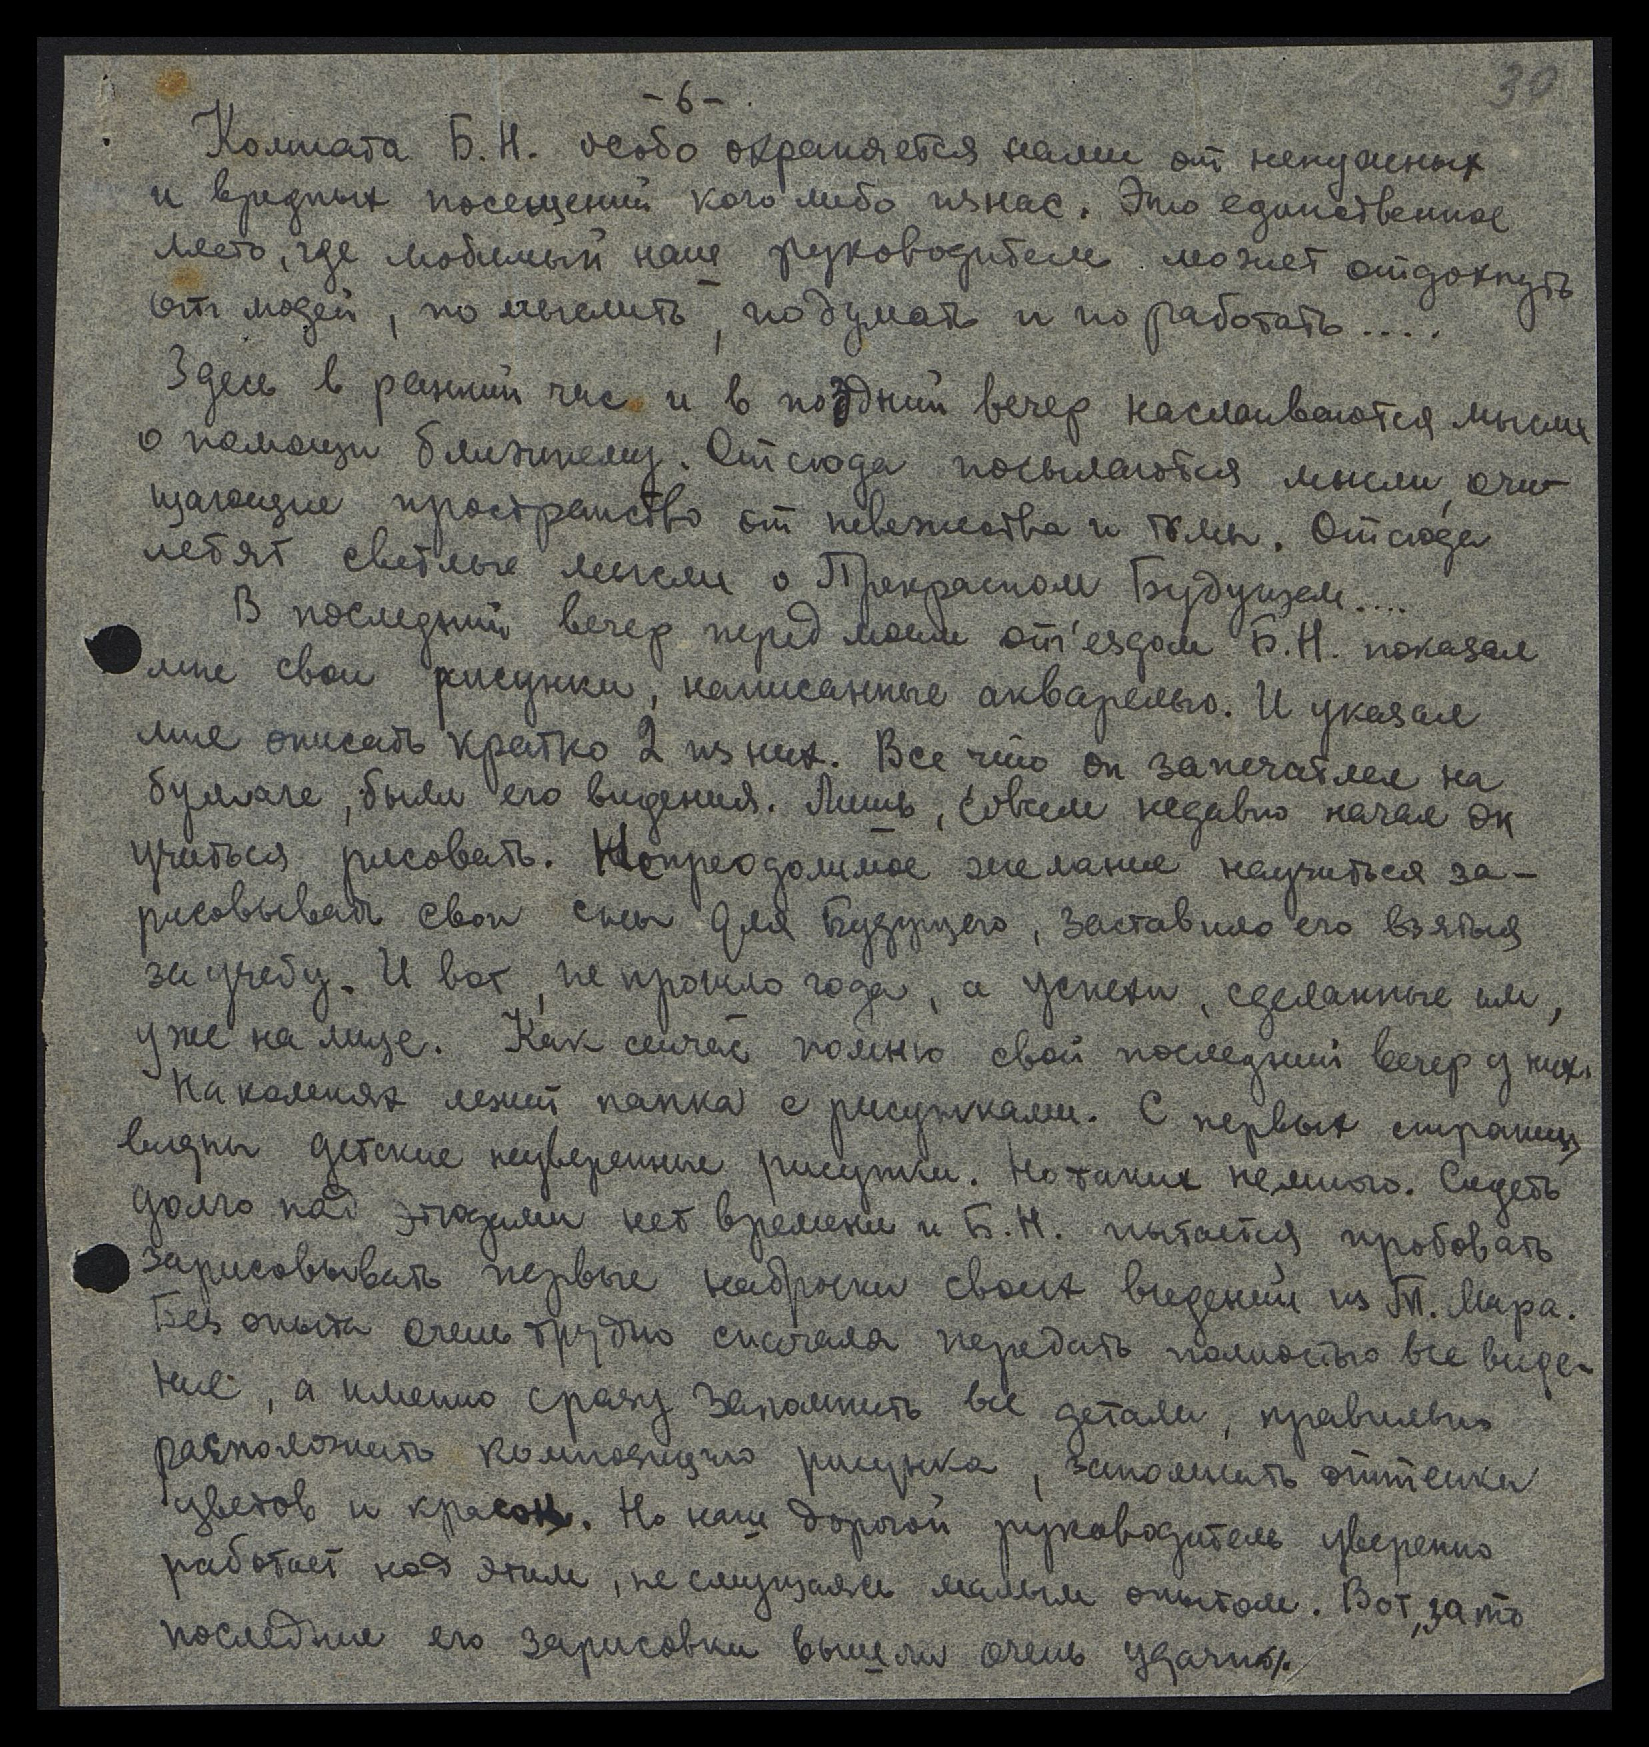 30
-6-
Комната Б.Н. особо охраняется нами от ненужных
и вредных посещений кого либо из нас. Это единственное
место, где любимый наш руководитель может отдохнуть
от людей, по мыслить, подумать и по работать....
Здесь в ранний час и в поздний вечер наслаиваются мысли
о помощи ближнему. Отсюда посылаются мысли, очи-
щающие пространство от невежества и тьмы. Отсюда
летят светлые мысли о Прекрасном Будущем....
В последний вечер перед моим от'ездом Б.Н. показал
мне свои рисунки, написанные акварелью. И указал
мне описать кратко 2 из них. Все что он запечатлел на
бумаге, были его видения. Лишь, совсем недавно начал он
учиться рисовать. Непреодолимое желание научиться за-
рисовывать свои сны для Будущего, заставило его взяться
за учебу. И вот, не прошло года, а успехи, сделанные им,
уже на лице. Как сейчас помню свой последний вечер у них.
На коленях лежит папка с рисунками. С первых страниц
видны детские неуверенные рисунки. Но таких немного. Сидеть
долго над этюдами нет времени и Б.Н. пытается пробовать
зарисовывать первые наброски своих видений из Т. Мира.
Без опыта очень трудно сначала передать полностью все виде-
ние, а именно сразу запомнить все детали, правильно
расположить композицию рисунка, запомнить оттенки
цветов и красок. Но наш дорогой руководитель уверенно
работает над этим, не смущаясь малым опытом. Вот, за то
последние его зарисовки вышли очень удачны.